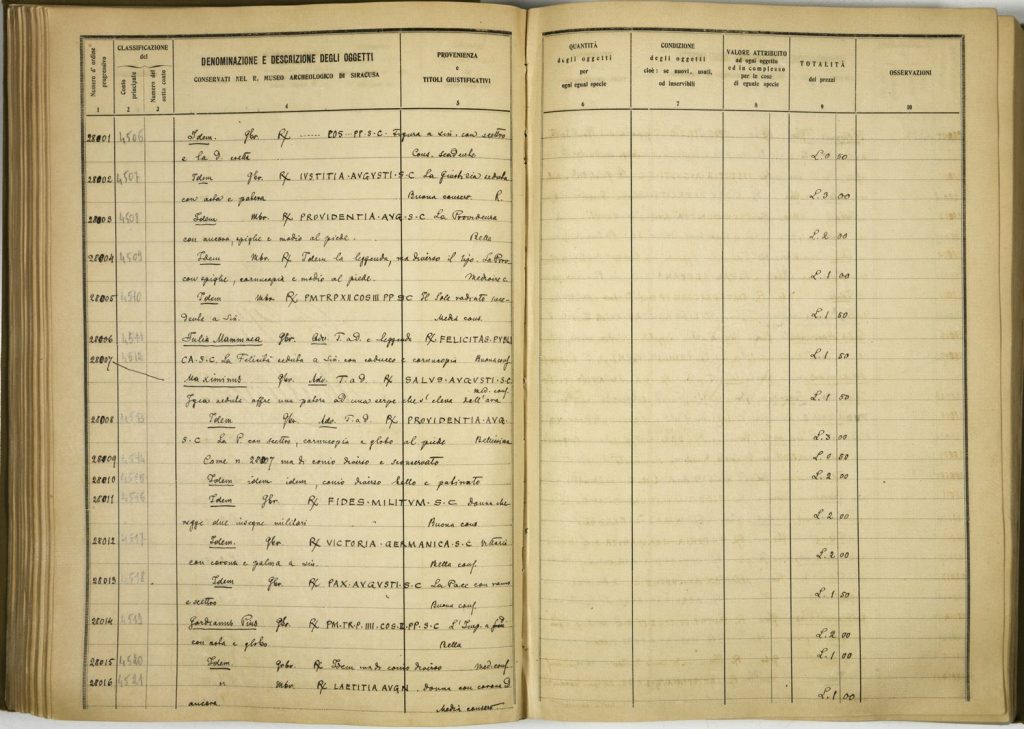 Numero d'ordine progressivo
CLASSIFICAZIONE del
Conto principale
Numero del sotto conto
DENOMINAZIONE E DESCRIZIONE DEGLI OGGETTI
CONSERVATI NEL R. MUSEO ARCHEOLOGICO DI SIRACUSA
PROVENIENZA
e
TITOLI GIUSTIFICATIVI
QUANTITÀ
degli oggetti
per
ogni egual specie
CONDIZIONE
degli oggetti
cioè: se nuovi, usati,
od inservibili
VALORE ATTRIBUITO
ad ogni oggetto
od in complesso
per le cose
di eguale specie
TOTALITÀ
dei prezzi
OSSERVAZIONI
1 2 3 4 5 6 7 8 9 10
28001 4506 Idem. Gbr. R/ ...... POS...PP.S.C. Figura a sin. con scettro
e la d. Cons. scadente L. 0 50
28002 4507 Idem Gbr. R/ IVSTITIA·AVGVSTI·S·C La Giustizia seduta
con asta e patera Buona conserv. R. L. 3 00
28003 4508 Idem Mbr. R/ PROVIDENTIA·AVG·S·C La Providenza
con ancora, spighe e modio al piede. Bella L. 2 00
28004 4509 Idem Mbr. R/ Idem la leggenda, ma diverso il tipo. La Prov.
con spighe, cornucopia e modio al piede. Mediocre c. L. 1 00
28005 4510 Idem Mbr. R/ PMTRPXII.COSIII.PP.SC Il Sole radiato
a sin. Media cons. L. 1 50
28006 4511 Iulia Mammaea Gbr. Adv. T. a d. e leggenda R/ FELICITAS·PVBLI
28007 4512 CA·S·C. La Felicità seduta a sin. con caduceo e cornucopia Buona conf. L. 1 50
Maximinus Gbr. Adv. T. a d. R/ SALVS·AVGVSTI·S·C.
med. conf.
Igea seduta offre una patera ad una serpe che s'eleva dall'ara L. 1 50
28008 4513 Idem Gbr. Adv. T. a d. R/ PROVIDENTIA·AVG·
S·C La P. con scettro, cornucopia e globo al piede Bellissima L. 3 00
28009 4514 Come n. 28007 ma di conio diverso e sconservato L. 0 50
28010 4515 Idem idem idem, conio diverso bello e patinato L. 2 00
28011 4516 Idem Gbr. R/ FIDES·MILITVM·S·C donna che
regge due insegne militari Buona cons. L. 2 00
28012 4517 Idem. Gbr. R/ VICTORIA·GERMANICA·S·C Vittoria
con corona e palma a sin. Bella conf. L. 2 00
28013 4518 Idem Gbr. R/ PAX·AVGVSTI·S·C La Pace con ramo
e scettro Buona conf. L. 1 50
28014 4519 Gordianus Pius Gbr. R/ PM·TR·P·IIII·COS·II·PP·S·C L'Imp. a
con asta e globo Bella L. 2 00
28015 4520 Idem. Gbr. R/ Idem ma di conio diverso Med. conf. L. 1 00
28016 4521 " Mbr. R/ LAETITIA AVG N. donna con corona
ancora. Media conserv. L. 1 00